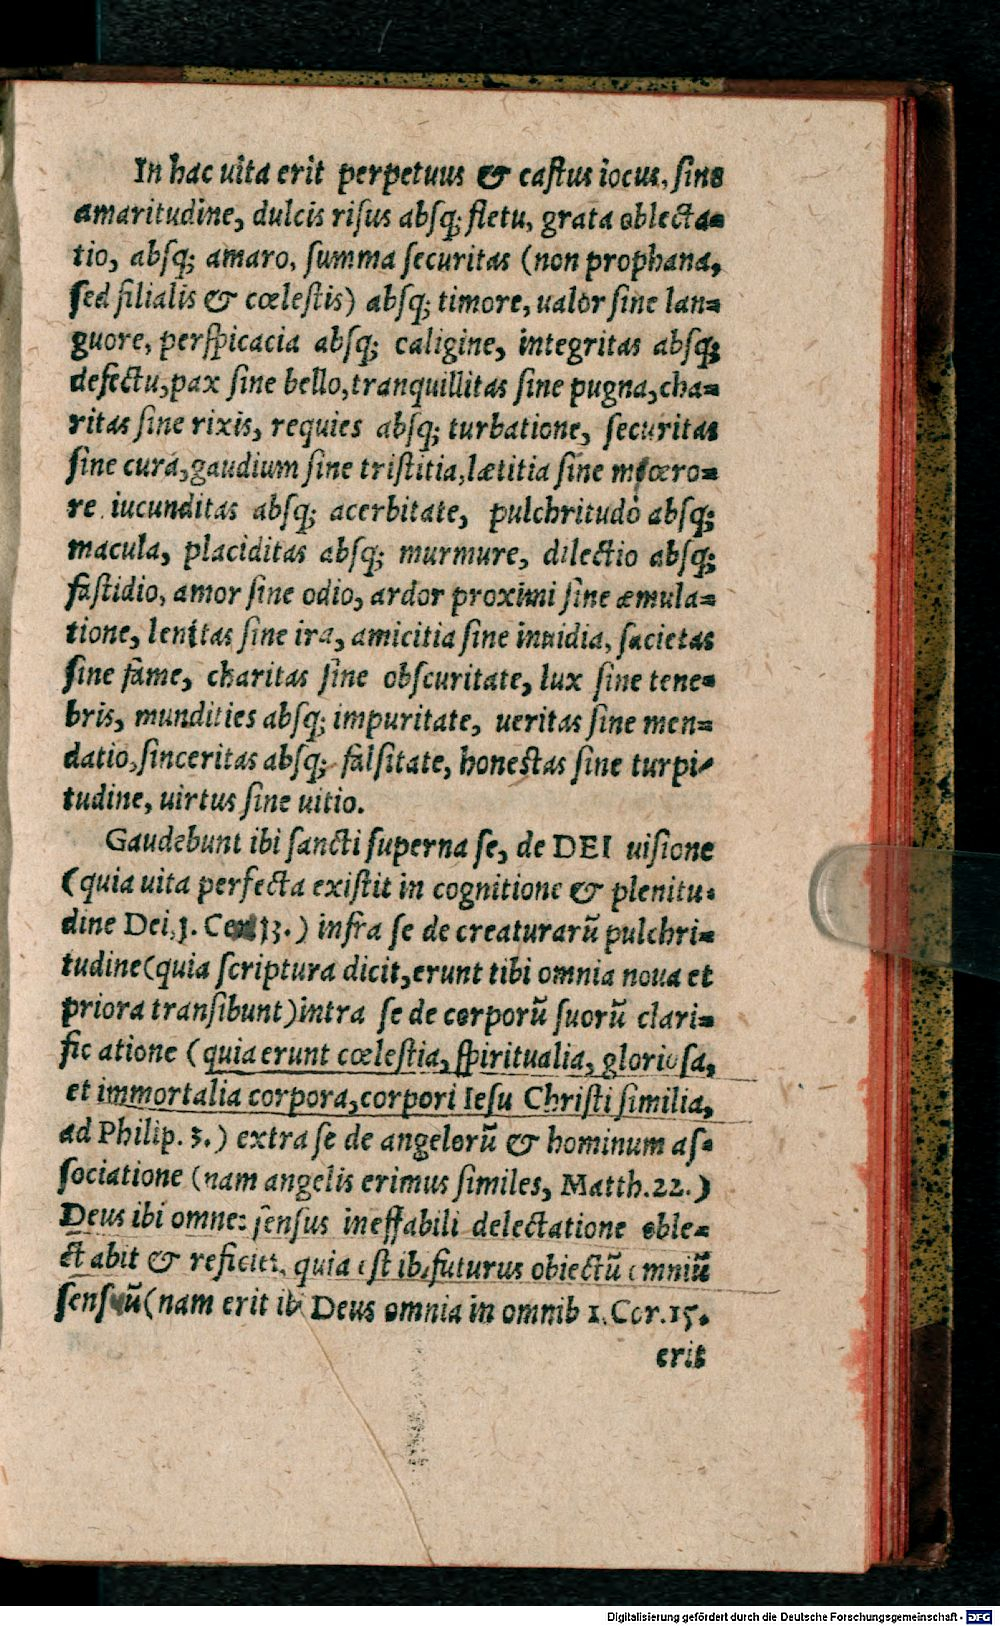 In hac uita erit perpetuus & castus iocus, sine
amaritudine, dulcis risus absq; fletu, grata oblecta=
tio, absq; amaro, summa securitas (non prophana,
sed filialis & cœlestis) absq; timore, ualor sine lan=
guore, perspicacia absq; caligine, integritas absq;
defectu, pax sine bello, tranquillitas sine pugna, cha=
ritas sine rixis, requies absq; turbatione, securitas
sine cura, gaudium sine tristitia, lætitia sine mœro=
re iucunditas absq; acerbitate, pulchritudo absq;
macula, placiditas absq; murmure, dilectio absq;
fastidio, amor sine odio, ardor proximi sine æmula=
tione, lenitas sine ira, amicitia sine inuidia, sacietas
sine fame, charitas sine obscuritate, lux sine tene=
bris, mundities absq; impuritate, ueritas sine men=
datio, sinceritas absq; falsitate, honestas sine turpi=
tudine, uirtus sine uitio.
Gaudebunt ibi sancti superna se, de DEI uisione
(quia uita perfecta existit in cognitione & plenitu=
dine Dei, 1. Cor. 13.) infra se de creaturarũ pulchri=
tudine (quia scriptura dicit, erunt tibi omnia noua et
priora transibunt) intra se de corporũ suorũ clari=
fic atione (quia erunt cœlestia, spiritualia, gloriosa,
et immortalia corpora, corpori Iesu Christi similia,
ad Philip. 3.) extra se de angelorũ & hominum as=
sociatione (nam angelis erimus similes, Matth. 22.)
Deus ibi omnes sensus ineffabili delectatione oble=
ctabit & reficiet, quia est ibi futurus obiectũ omniũ
sensuũ (nam erit ibi Deus omnia in omnib 1. Cor. 15.
erit
Digitalisierung gefördert durch die Deutsche Forschungsgemeinschaft - DFG